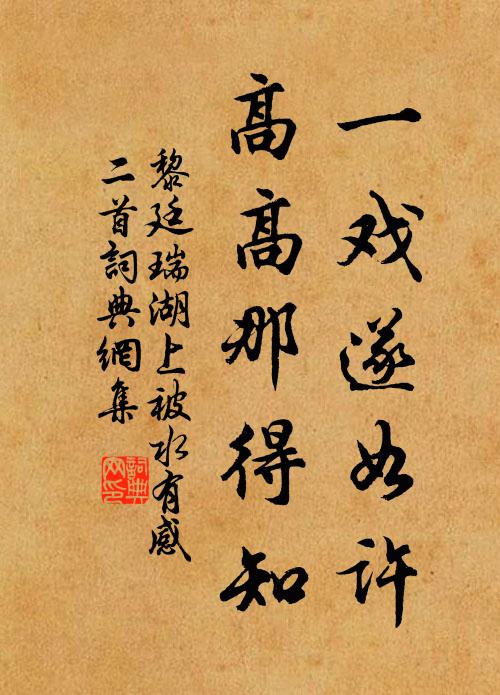 一戏遂如许
高高那得知
黎廷瑞湖上被水有感
二首詞典網集
詞典